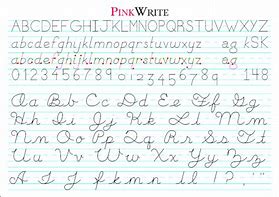 PINKWRITE
ABCDEFGHIJKLMNOPQRSTUVWXYZ
abcdefghijklmnopqrstuvwxyz ag kSK
abcdefghijklmnopqrstuvwxyz ag
0123456789 0123456789 148
Aa Bb Cc Dd Ee Ff Gg
Hh Ii Jj Kk Ll Mm
Nn Oo Pp Qq Rr Ss Tt
Uu Vv Ww Xx Yy Zz